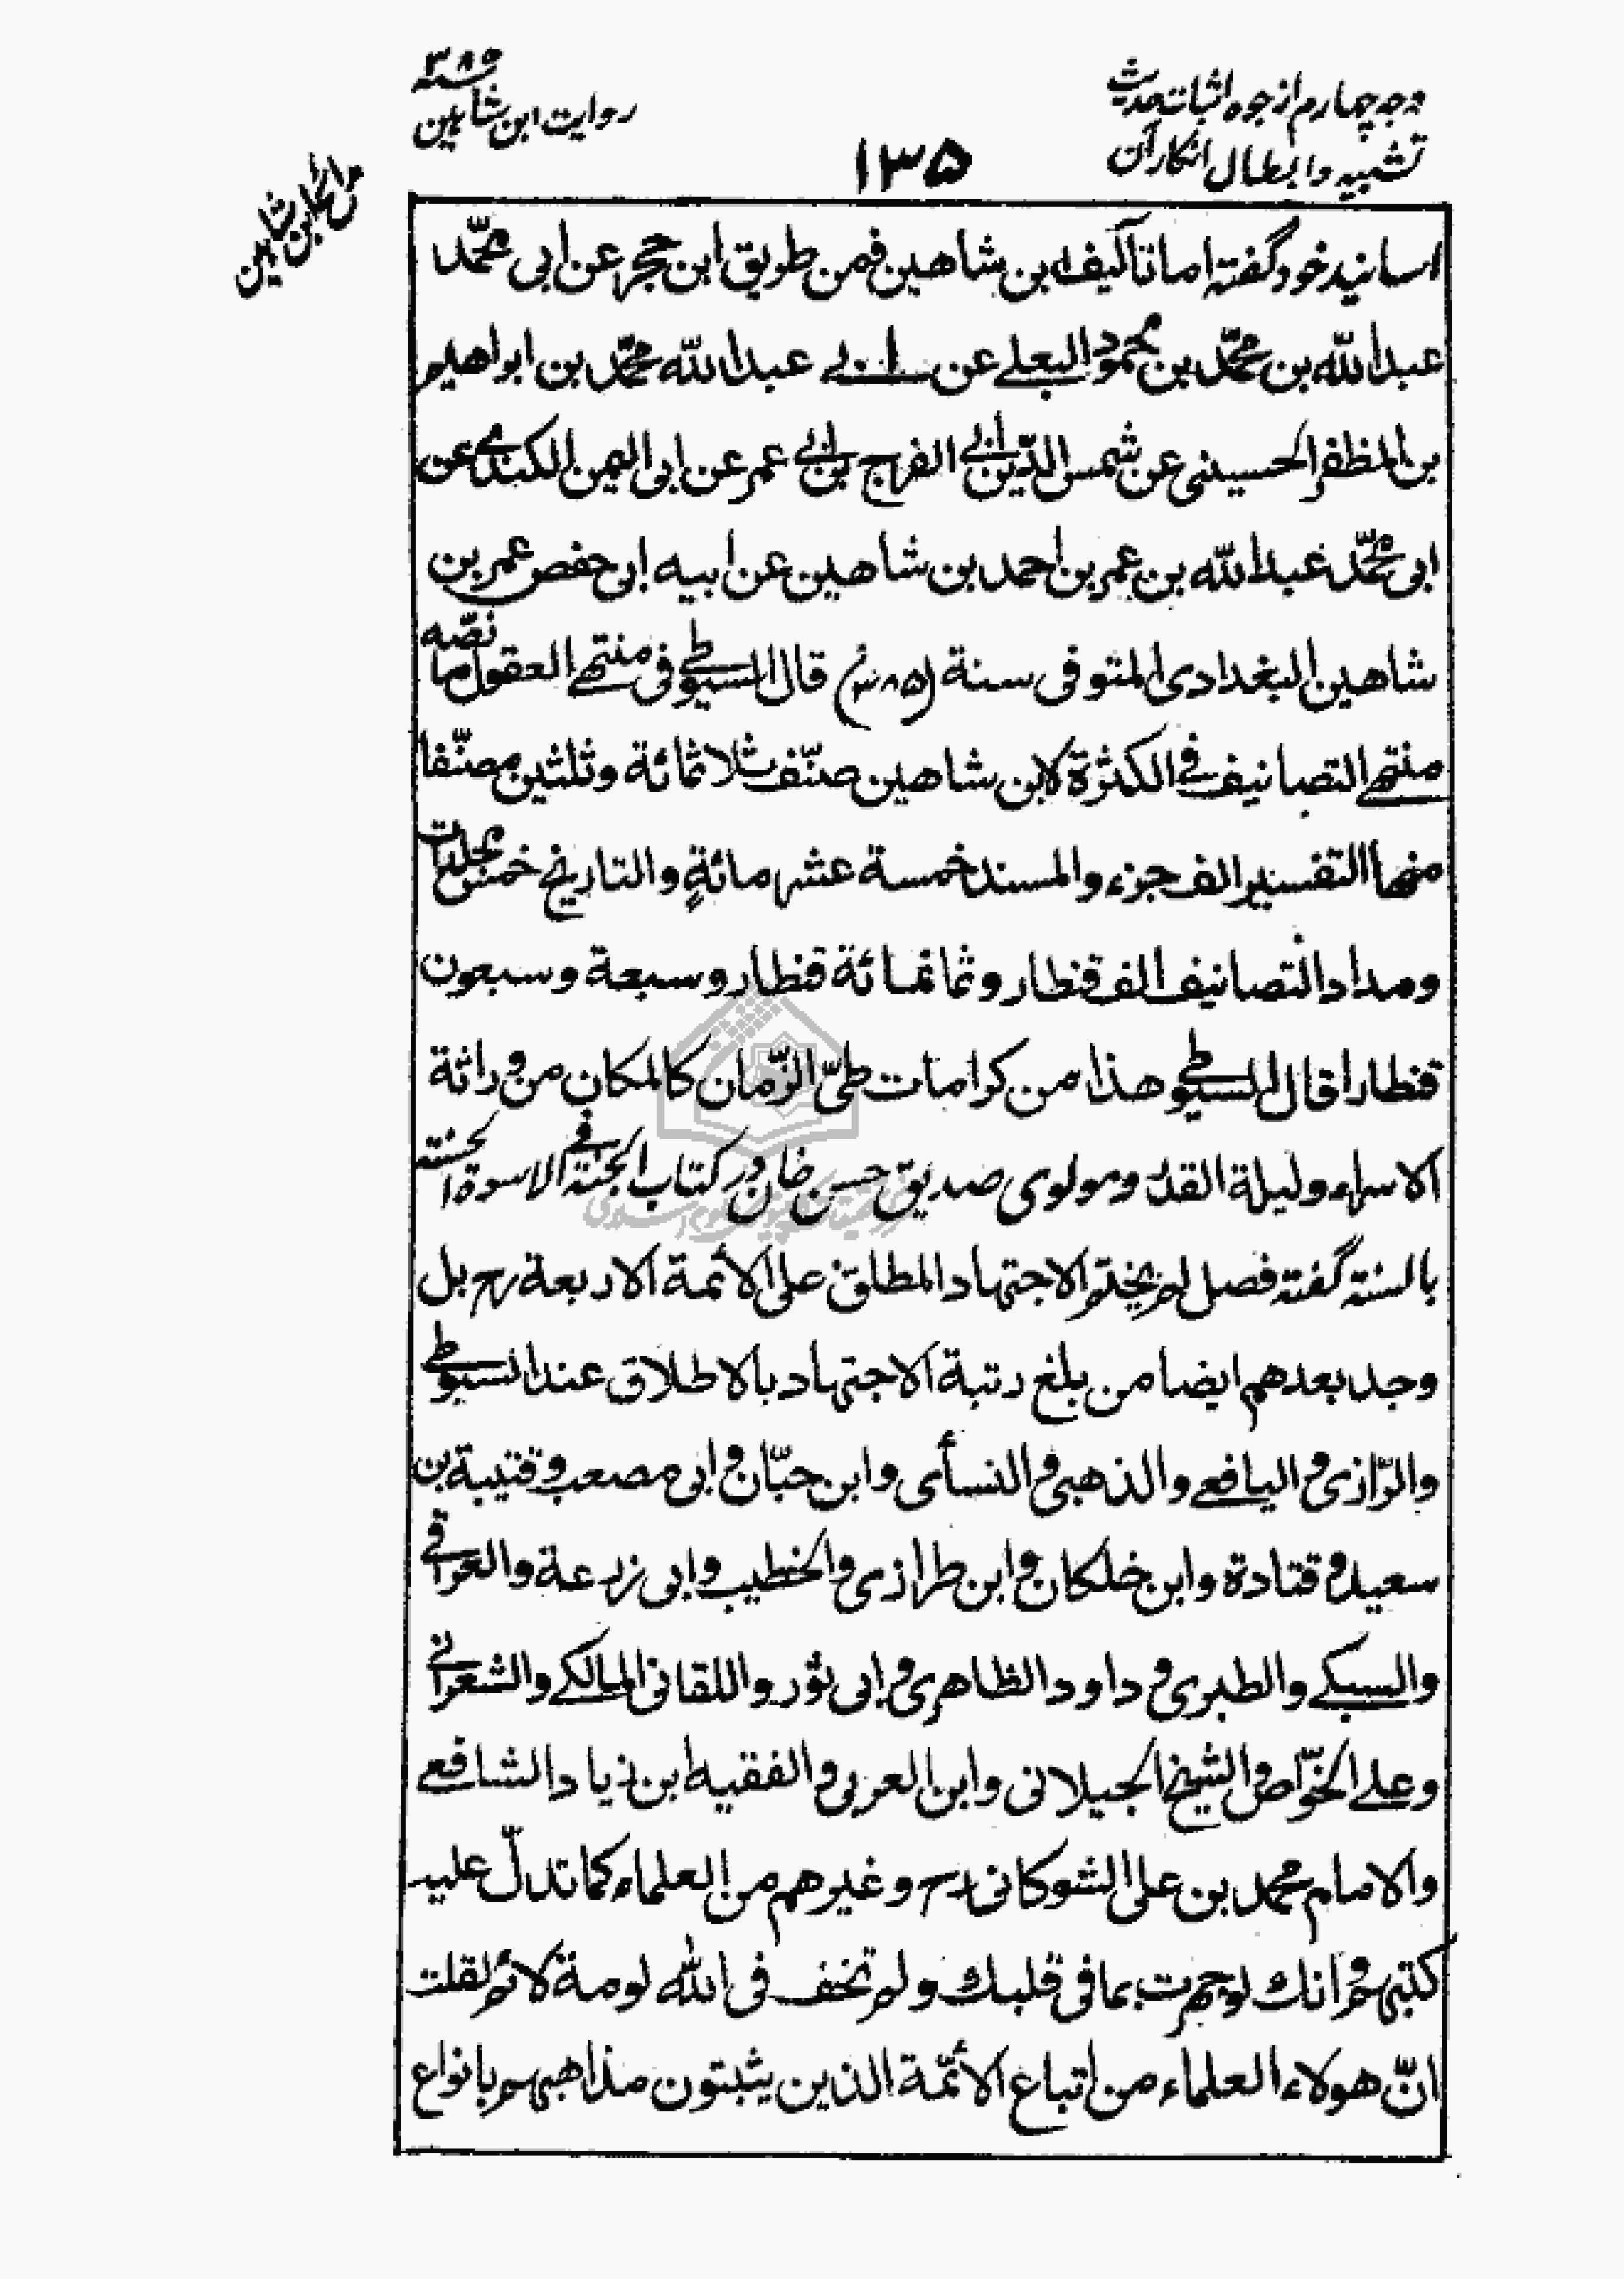 وجه چهارم از وجوه اثبات حدیث
تشبیه و ابطال انکار آن
۱۳۵
سنه ۳۸۵
روایت ابن شاهین
ابن شاهین
اسانید خود گفته اما تآلیف ابن شاهین فمن طریق ابن حجر عن ابی محمّد
عبد الله بن محمّد بن محمود البعلے عن ابی عبد الله محمّد بن ابراهیم
بن المظفر الحسینی عن شمس الدّین ابی الفرج بن ابی عمر عن ابی الیمن الکندی عن
ابی محمّد عبد الله بن عمر بن احمد بن شاهین عن ابیه ابی حفص عمر بن
شاهین البغدادی المتوفی سنة (۳۸۵) قال السیوطی فی منتهی العقول ما نصّه
منتهی التصانیف فی الکثرة لابن شاهین صنّف ثلاثمائة وثلثین مصنّفا
منها التفسیر الف جزء والمسند خمسة عشر مائةٍ والتاریخ خمس مجلدات
ومداد التصانیف الف قنطار وثمانمائة قنطار وسبعة وسبعون
قنطارا قال السیوطی هذا من کرامات طیّ الزّمان کالمکان من وراثة
الاسراء ولیلة القدر و مولوی صدیق حسن خان در کتاب الجنة فی الاسوة الحسنة
بالسنة گفته فصل لم یختم الاجتهاد المطلق علی الأئمة الاربعة رح بل
وجد بعدهم ایضا من بلغ رتبة الاجتهاد بالاطلاق عند السیوطی
والرّازی و الیافعے والذهبی و النسأی وابن حبّان و ابی مصعب و قتیبة بن
سعید و قتادة وابن خلکان و ابن طرازی و الخطیب و ابی زرعة والعراقی
والسبکے والطبری و داود الظاهری و ابی ثور واللقانی المالکے والشعرانی
وعلے الخوّاص و الشیخ الجیلانی وابن العربی و الفقیه ابن زیاد الشافعے
والامام محمد بن علی الشوکانی رح وغیرهم من العلماء کما تدلّ علیه
کتبهم و انك لو جهرت بما فی قلبك ولم تخف فی الله لومة لائم لقلت
انّ هولاء العلماء من اتباع الأئمّة الذین یثبتون مذاهبهم بانواع